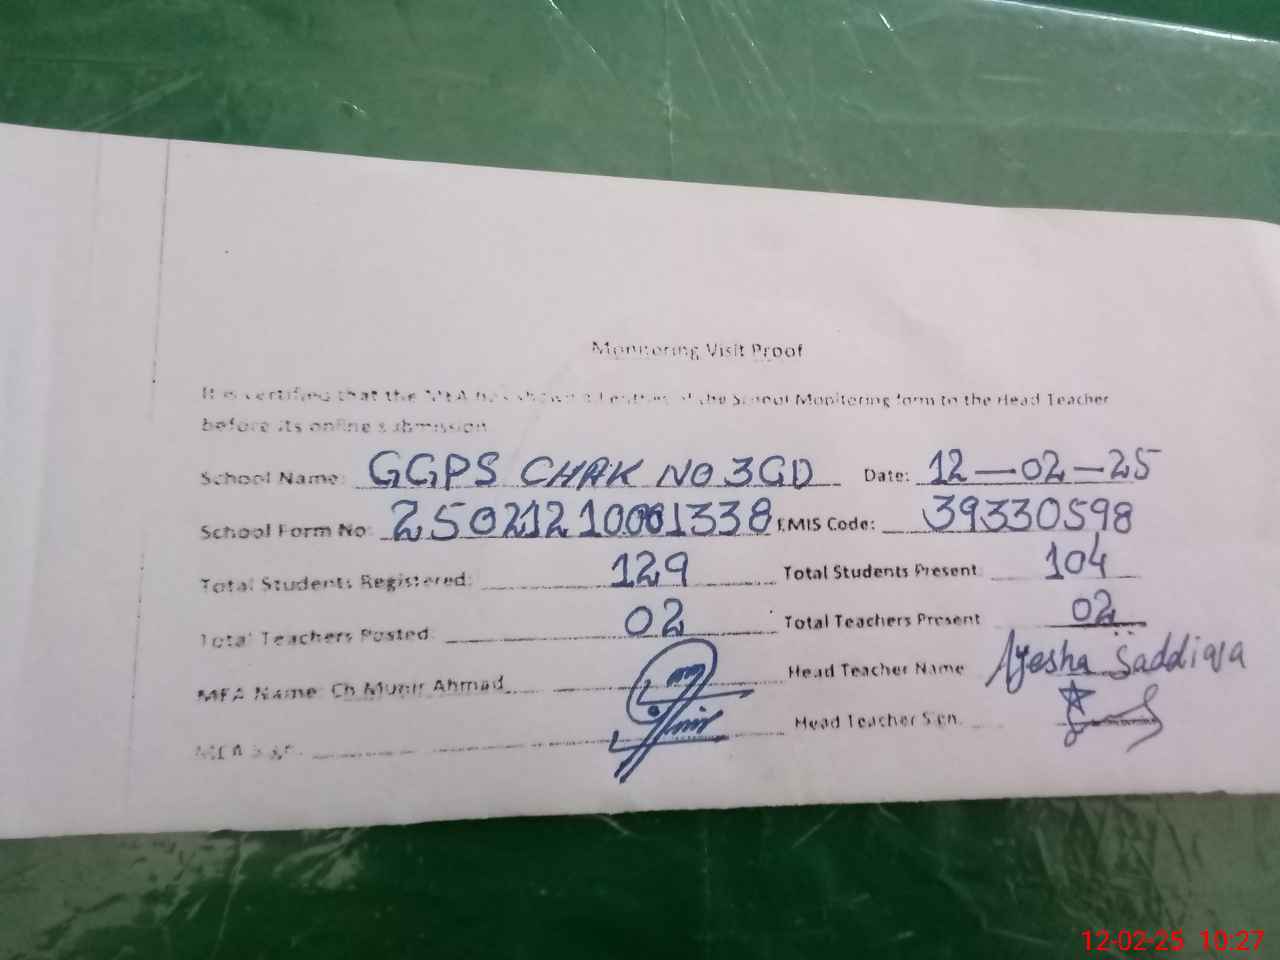 Monitoring Visit Proof
It is certified that the MEA has shown all entries of the School Monitoring form to the Head Teacher
before its online submission
School Name: GGPS CHAK NO 3GD Date: 12-02-25
School Form No: EMIS Code: 39330598
Total Students Registered: 129 Total Students Present 104
Total Teachers Posted: 02 Total Teachers Present 02
MEA Name: Ch Munir Ahmad Head Teacher Name Ayesha Saddiqa
MEA Sign. Head Teacher Sign.
12-02-25 10:27